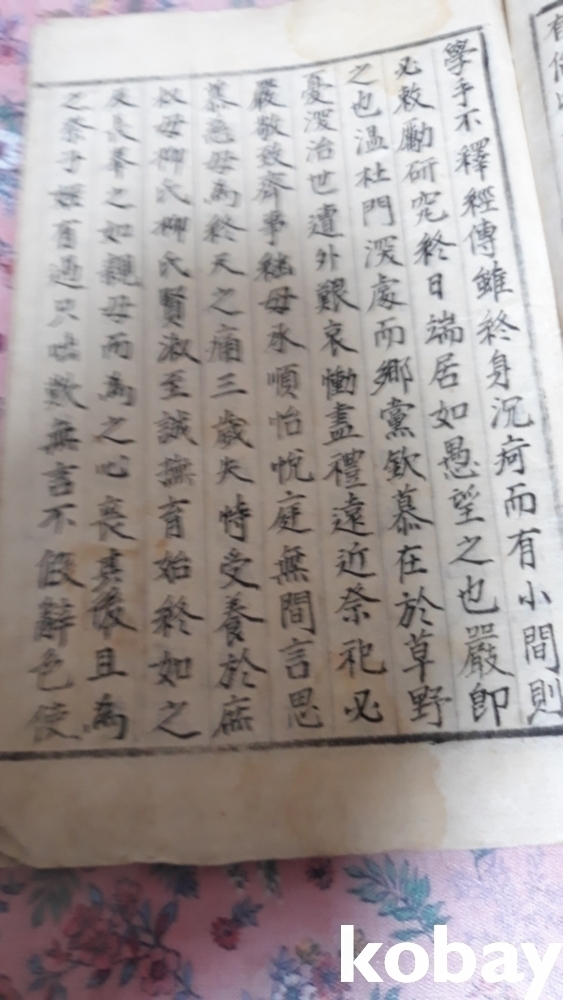 學手不釋經傳雖終身沉痾而有小間則
必敕勵研究終日端居如愚望之也嚴即
之也溫杜門深處而鄉黨欽慕在於草野
憂深治世遭外艱哀慟盡禮遠近祭祀必
嚴敬致齊事継母承順怡悅庭無間言思
慕慈母為終天之痛三歲失恃受養於庶
叔母柳氏柳氏賢淑至誠撫育始終如之
及長養之如親母而為之心喪其後且為
之祭子姪有過只咄歎無言不假辭色使
kobay